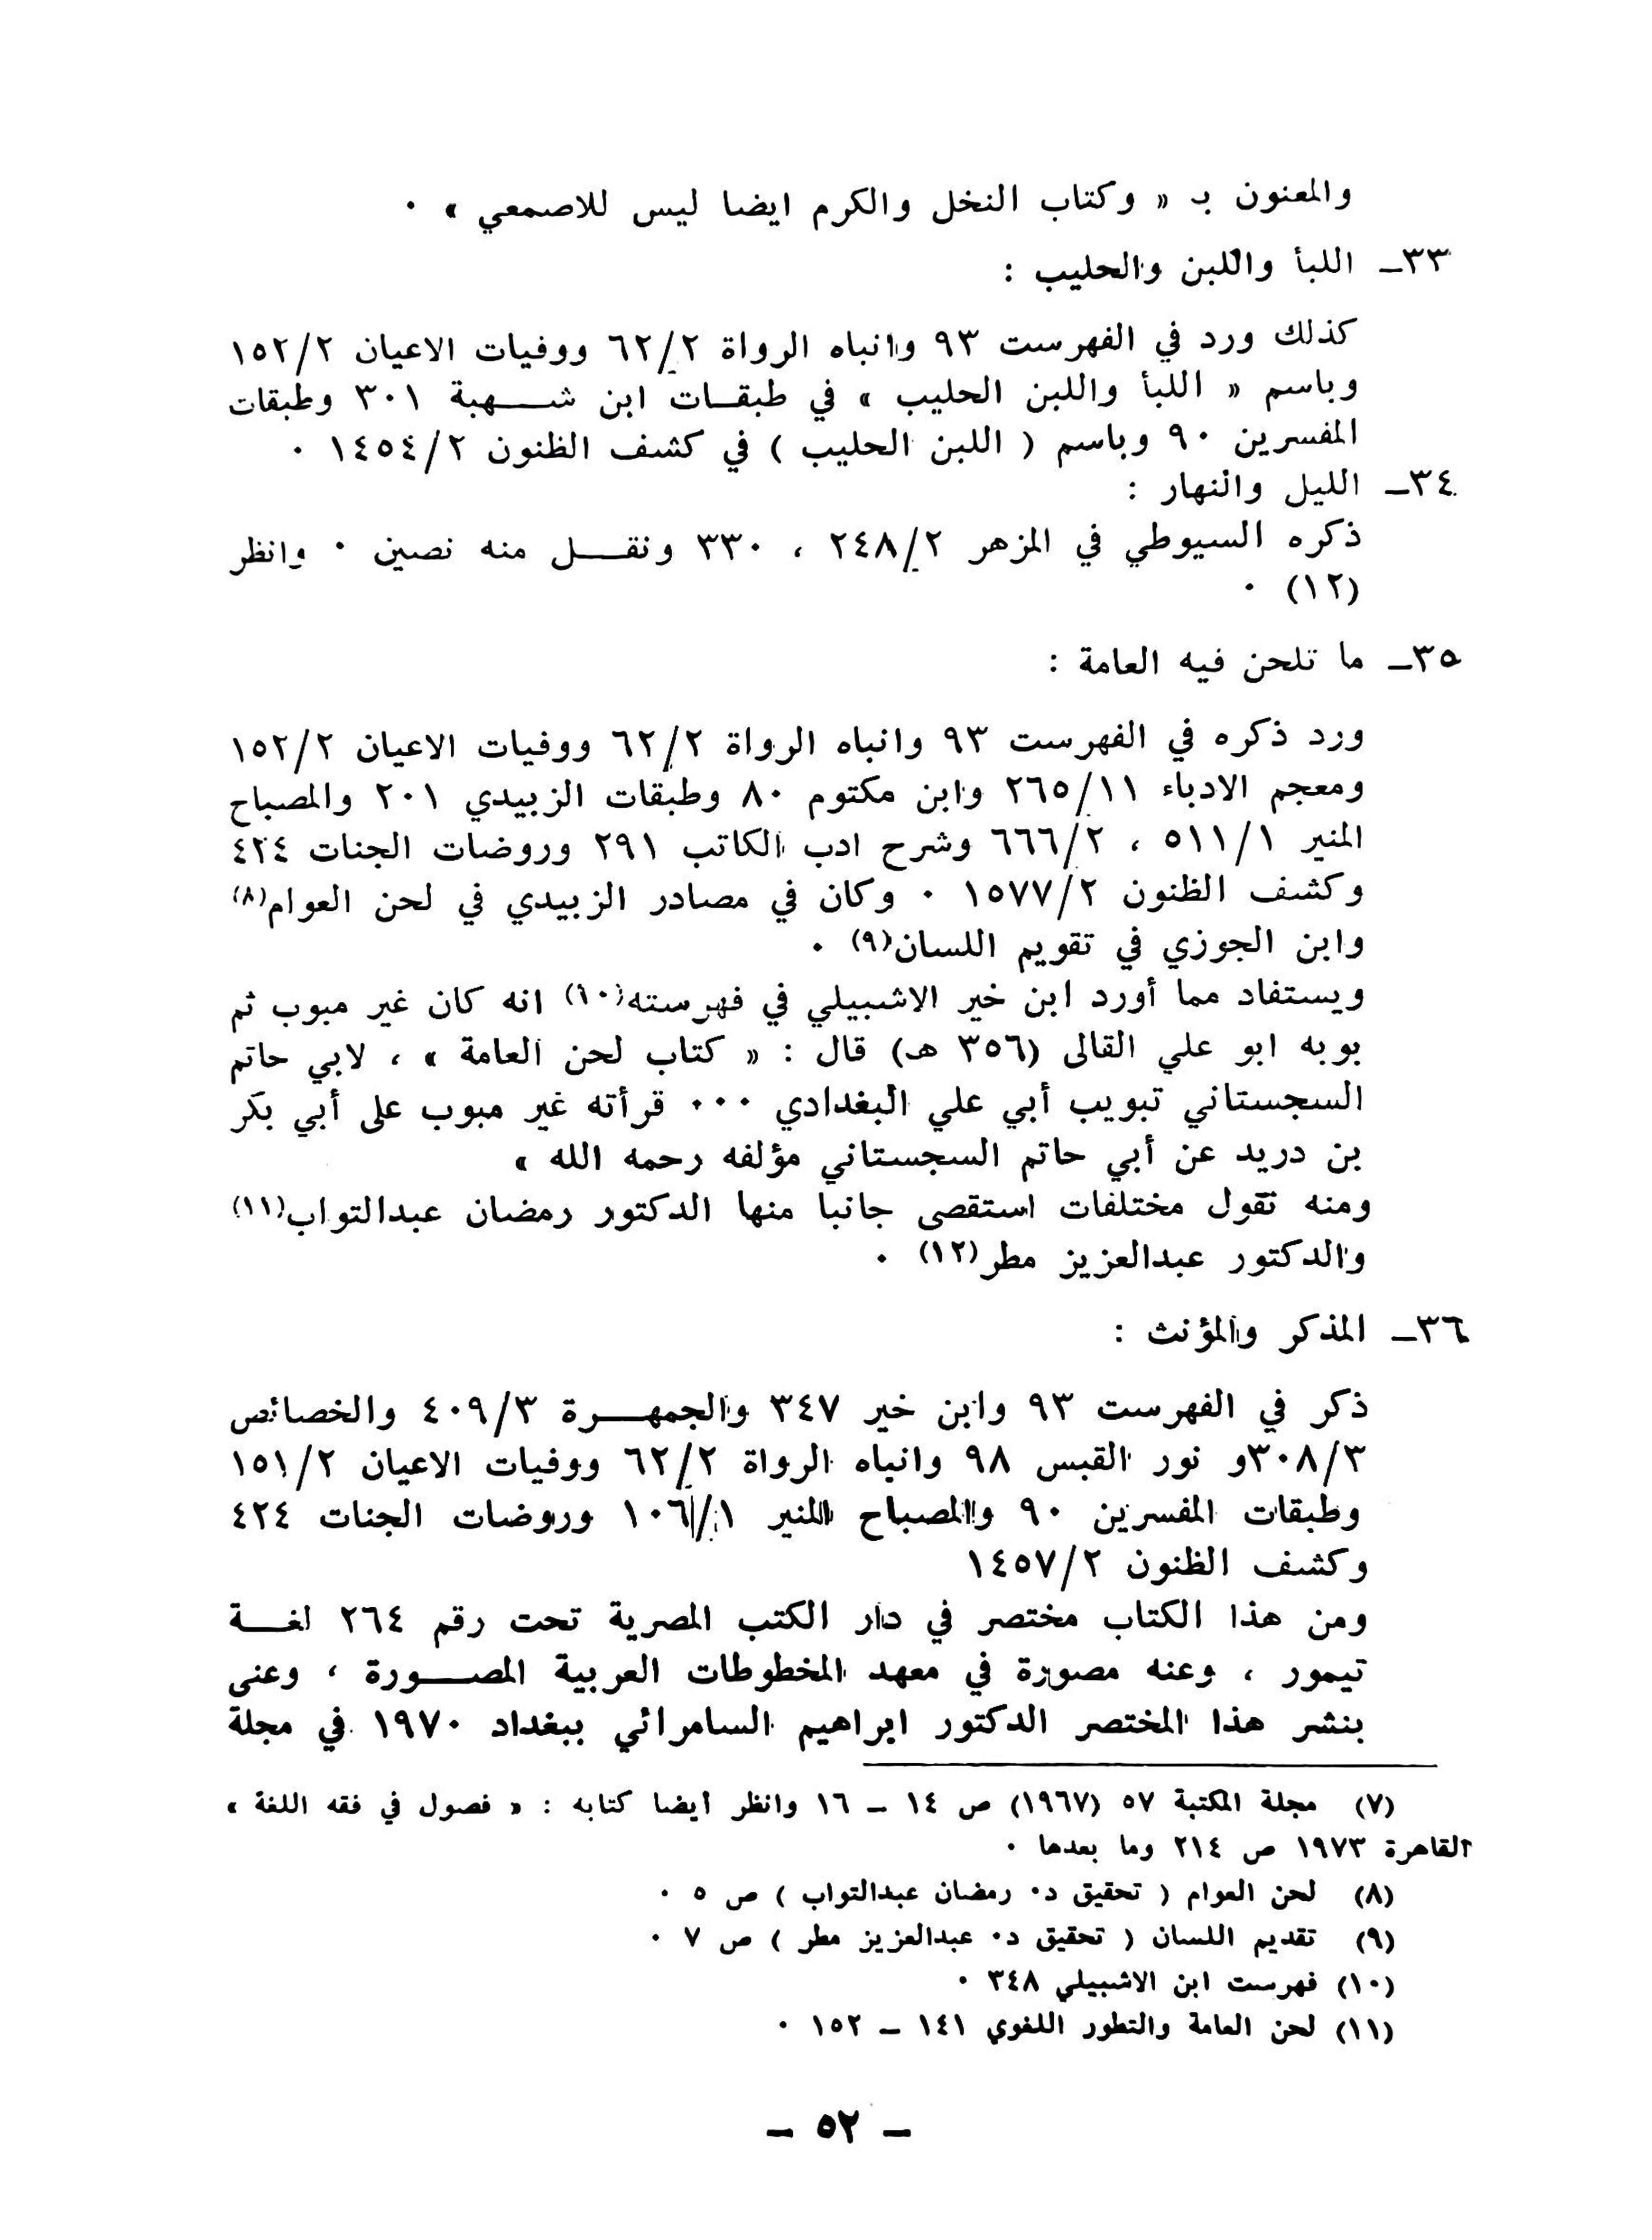 والمعنون بـ « وكتاب النخل والكرم ايضا ليس للاصمعي » ٠
٣٣ـ اللبأ واللبن والحليب :
كذلك ورد في الفهرست ٩٣ وانباه الرواة ٦٢/٢ ووفيات الاعيان ١٥٢/٢
وباسم « اللبأ واللبن الحليب » في طبقـات ابن شـــهبة ٣٠١ وطبقات
المفسرين ٩٠ وباسم ( اللبن الحليب ) في كشف الظنون ١٤٥٤/٢ ٠
٣٤ـ الليل والنهار :
ذكره السيوطي في المزهر ٢٤٨/٢ ، ٣٣٠ ونقـــل منه نصين ٠ وانظر
(١٢) ٠
٣٥ـ ما تلحن فيه العامة :
ورد ذكره في الفهرست ٩٣ وانباه الرواة ٦٢/٢ ووفيات الاعيان ١٥٢/٢
ومعجم الادباء ٢٦٥/١١ وابن مكتوم ٨٠ وطبقات الزبيدي ٢٠١ والمصباح
المنير ٥١١/١ ، ٦٦٦/٢ وشرح ادب الكاتب ٢٩١ وروضات الجنات ٤٢٤
وكشف الظنون ١٥٧٧/٢ ٠ وكان في مصادر الزبيدي في لحن العوام(٨)
وابن الجوزي في تقويم اللسان(٩) ٠
ويستفاد مما أورد ابن خير الاشبيلي في فهرسته(١٠) انه كان غير مبوب ثم
بوبه ابو علي القالى (٣٥٦ هـ) قال : « كتاب لحن العامة » ، لابي حاتم
السجستاني تبويب أبي علي البغدادي ٠٠٠ قرأته غير مبوب على أبي بكر
بن دريد عن أبي حاتم السجستاني مؤلفه رحمه الله »
ومنه نقول مختلفات استقصى جانبا منها الدكتور رمضان عبدالتواب(١١)
والدكتور عبدالعزيز مطر(١٢) ٠
٣٦ـ المذكر والمؤنث :
ذكر في الفهرست ٩٣ وابن خير ٣٤٧ والجمهـــرة ٤٠٩/٣ والخصائص
٣٠٨/٣و نور القبس ٩٨ وانباه الرواة ٦٢/٢ ووفيات الاعيان ١٥١/٢
وطبقات المفسرين ٩٠ والمصباح المنير ١٠٦/١ وروضات الجنات ٤٢٤
وكشف الظنون ١٤٥٧/٢
ومن هذا الكتاب مختصر في دار الكتب المصرية تحت رقم ٢٦٤ لغـــة
تيمور ، وعنه مصورة في معهد المخطوطات العربية المصـــورة ، وعنى
بنشر هذا المختصر الدكتور ابراهيم السامرائي ببغداد ١٩٧٠ في مجلة
(٧) مجلة المكتبة ٥٧ (١٩٦٧) ص ١٤ ـ ١٦ وانظر أيضا كتابه : « فصول في فقه اللغة »
القاهرة ١٩٧٣ ص ٢١٤ وما بعدها ٠
(٨) لحن العوام ( تحقيق د٠ رمضان عبدالتواب ) ص ٥ ٠
(٩) تقديم اللسان ( تحقيق د٠ عبدالعزيز مطر ) ص ٧ ٠
(١٠) فهرست ابن الاشبيلي ٣٤٨ ٠
(١١) لحن العامة والتطور اللغوي ١٤١ ـ ١٥٢ ٠
ـ ٥٢ ـ